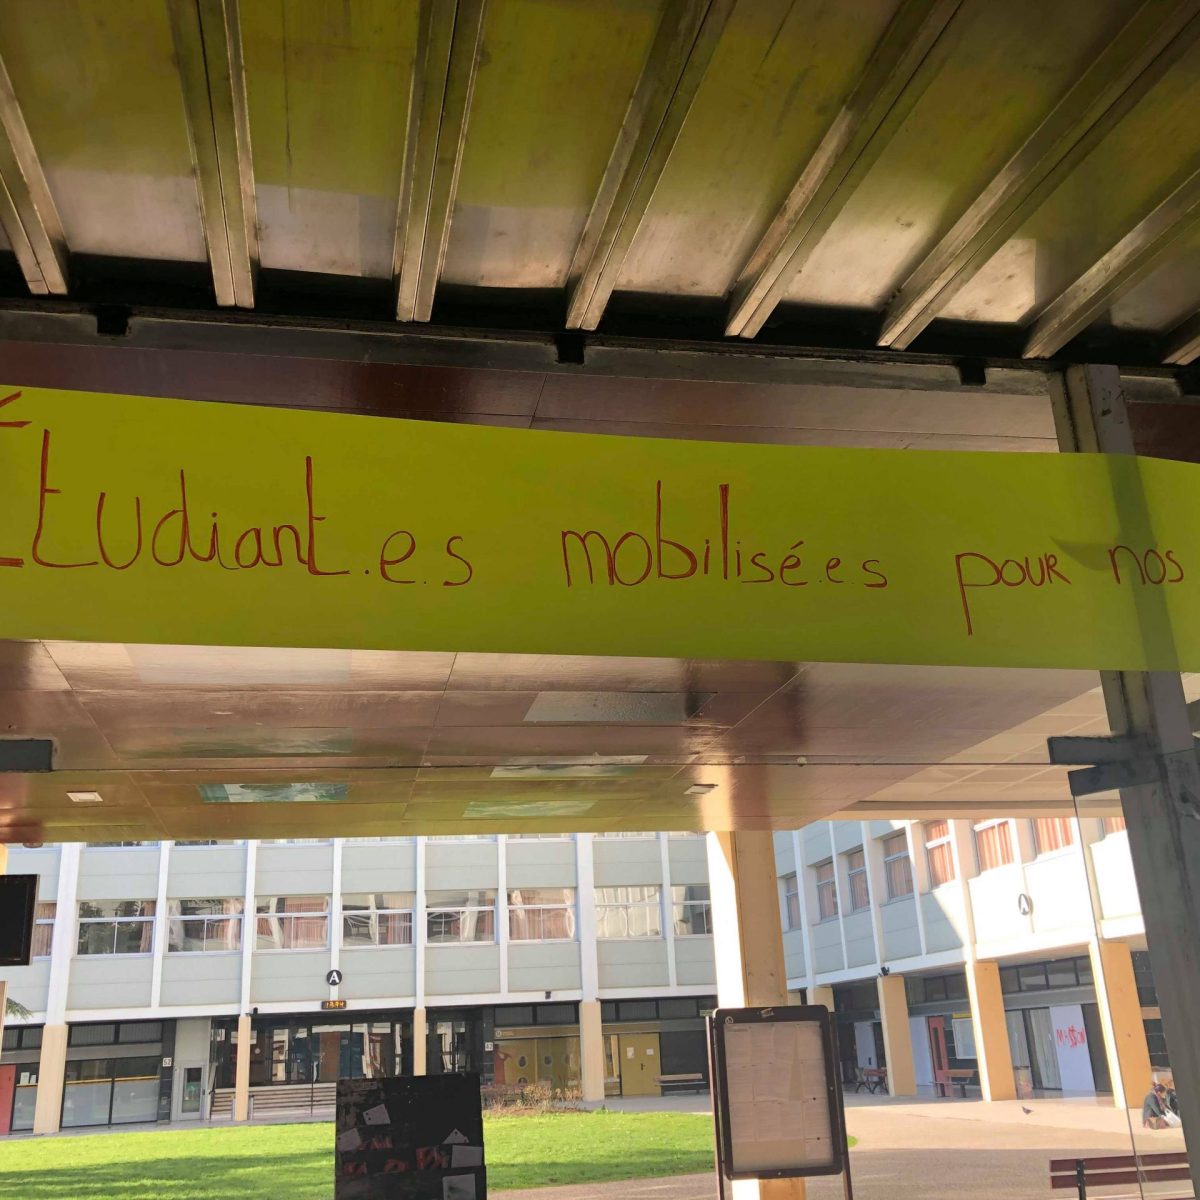 Étudiant.e.s mobilisé.e.s pour nos
A
A